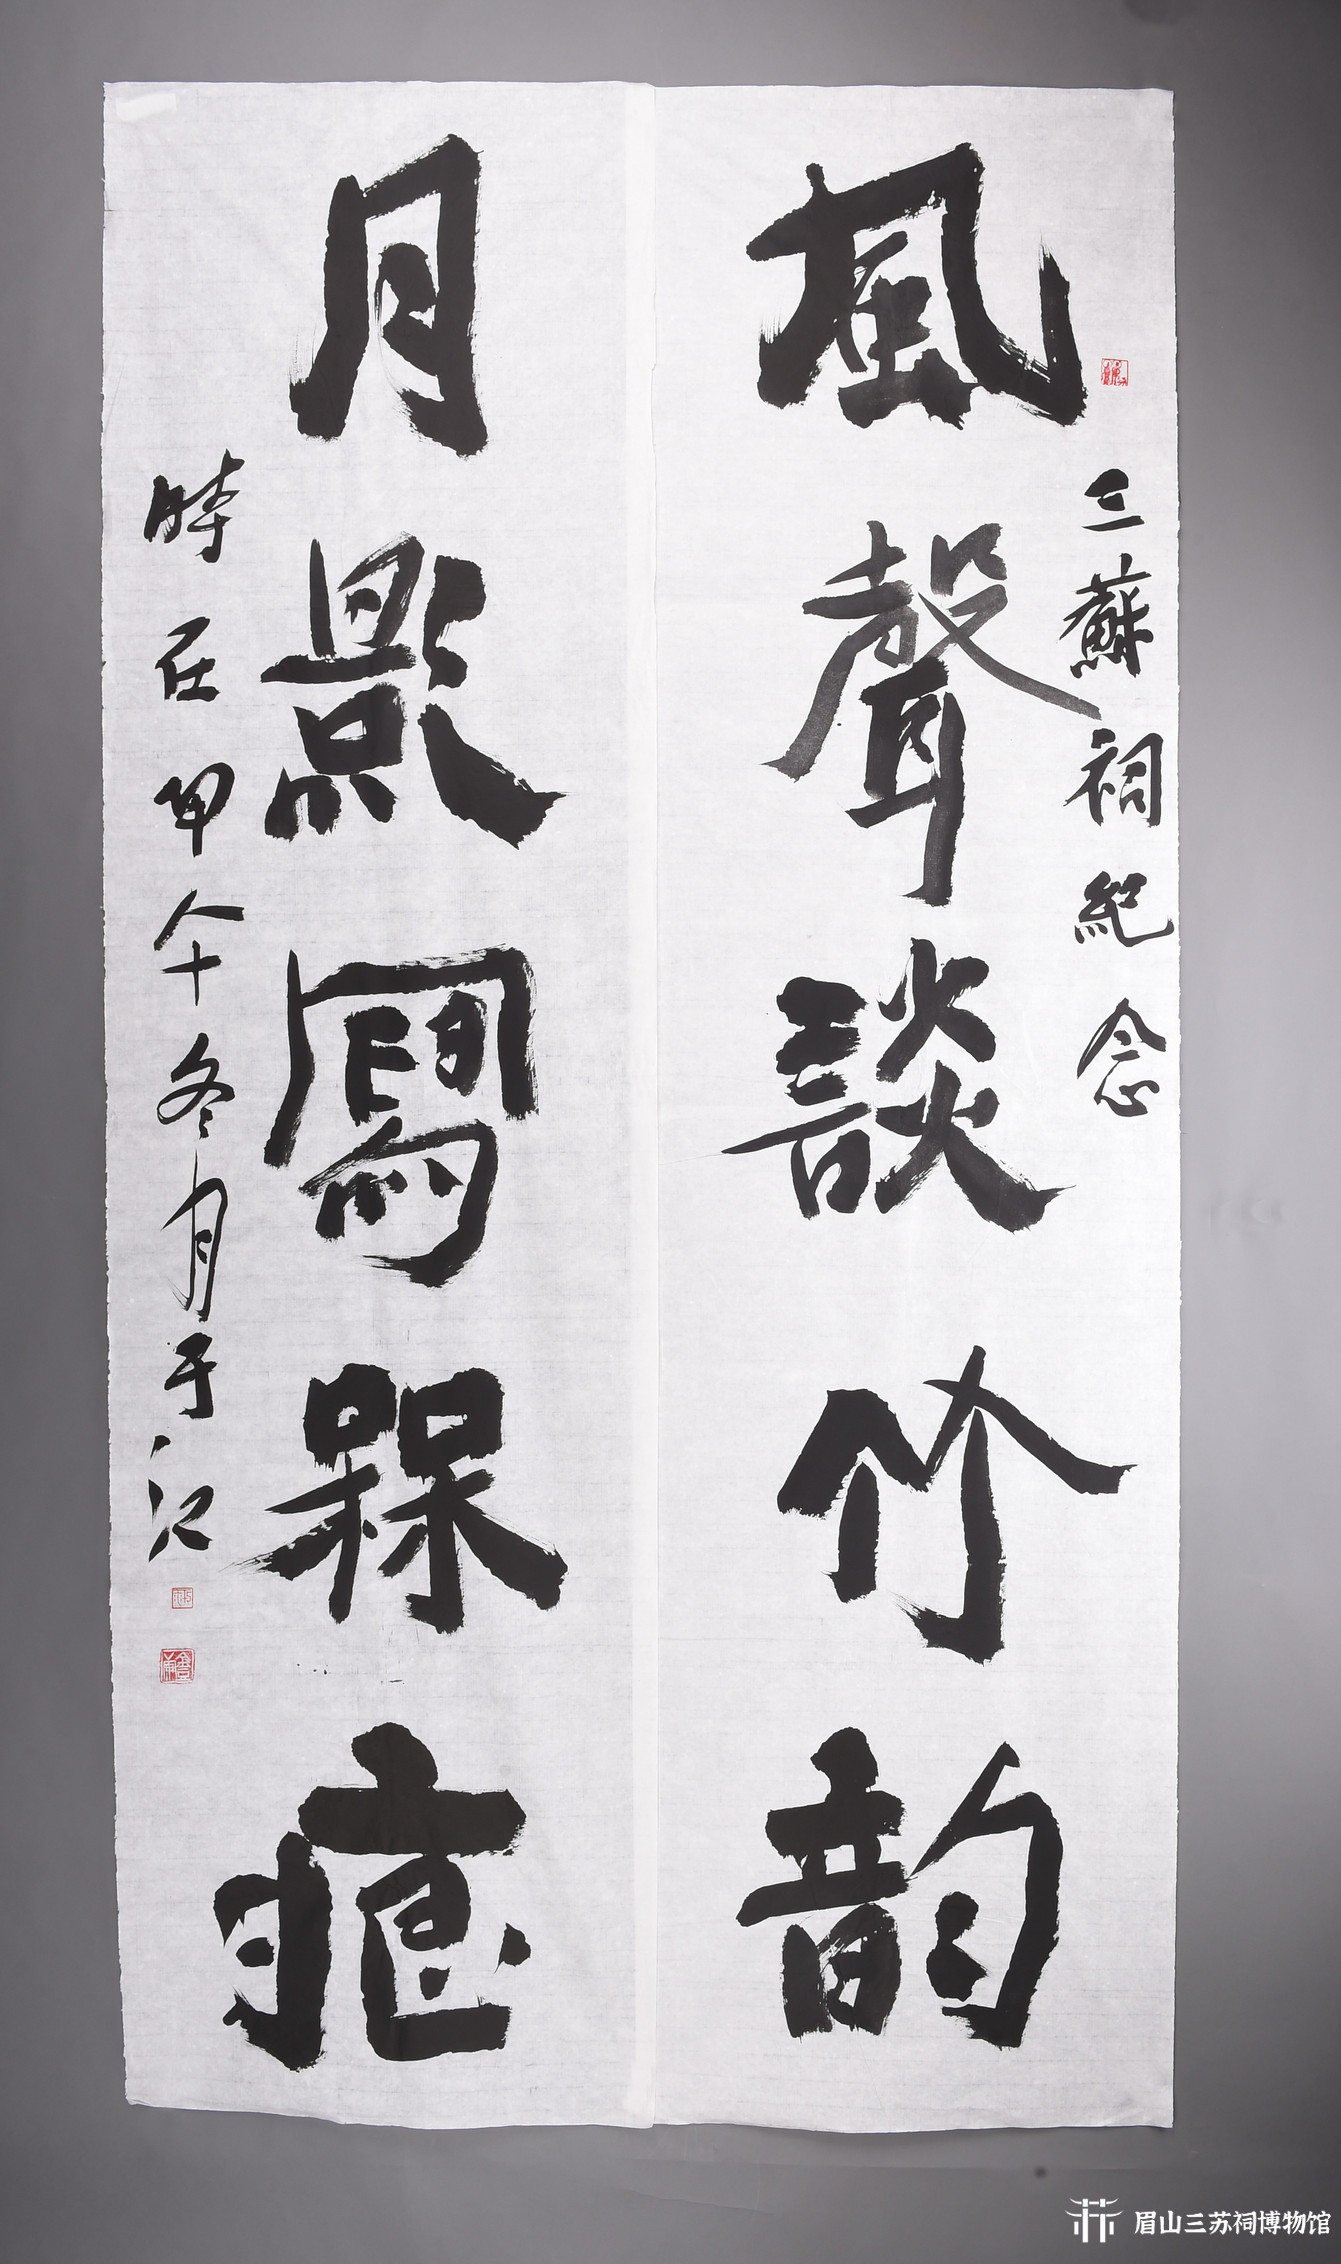 三蘇祠紀念
風聲談竹韵
月影寫槑痕
時在甲午冬月于
眉山三苏祠博物馆